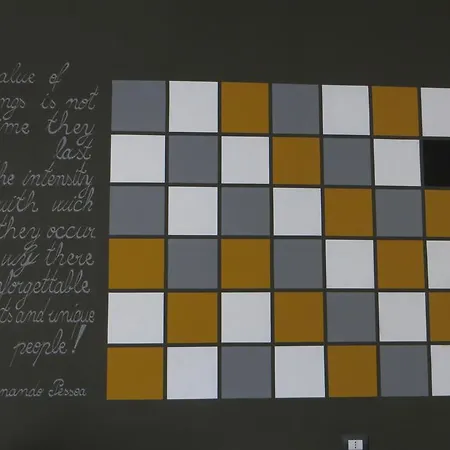 alue of
ngs is not
me they
last
he intensity
with wich
they occur
why there
nforgettable
ts and unique
people!
nando Pessoa